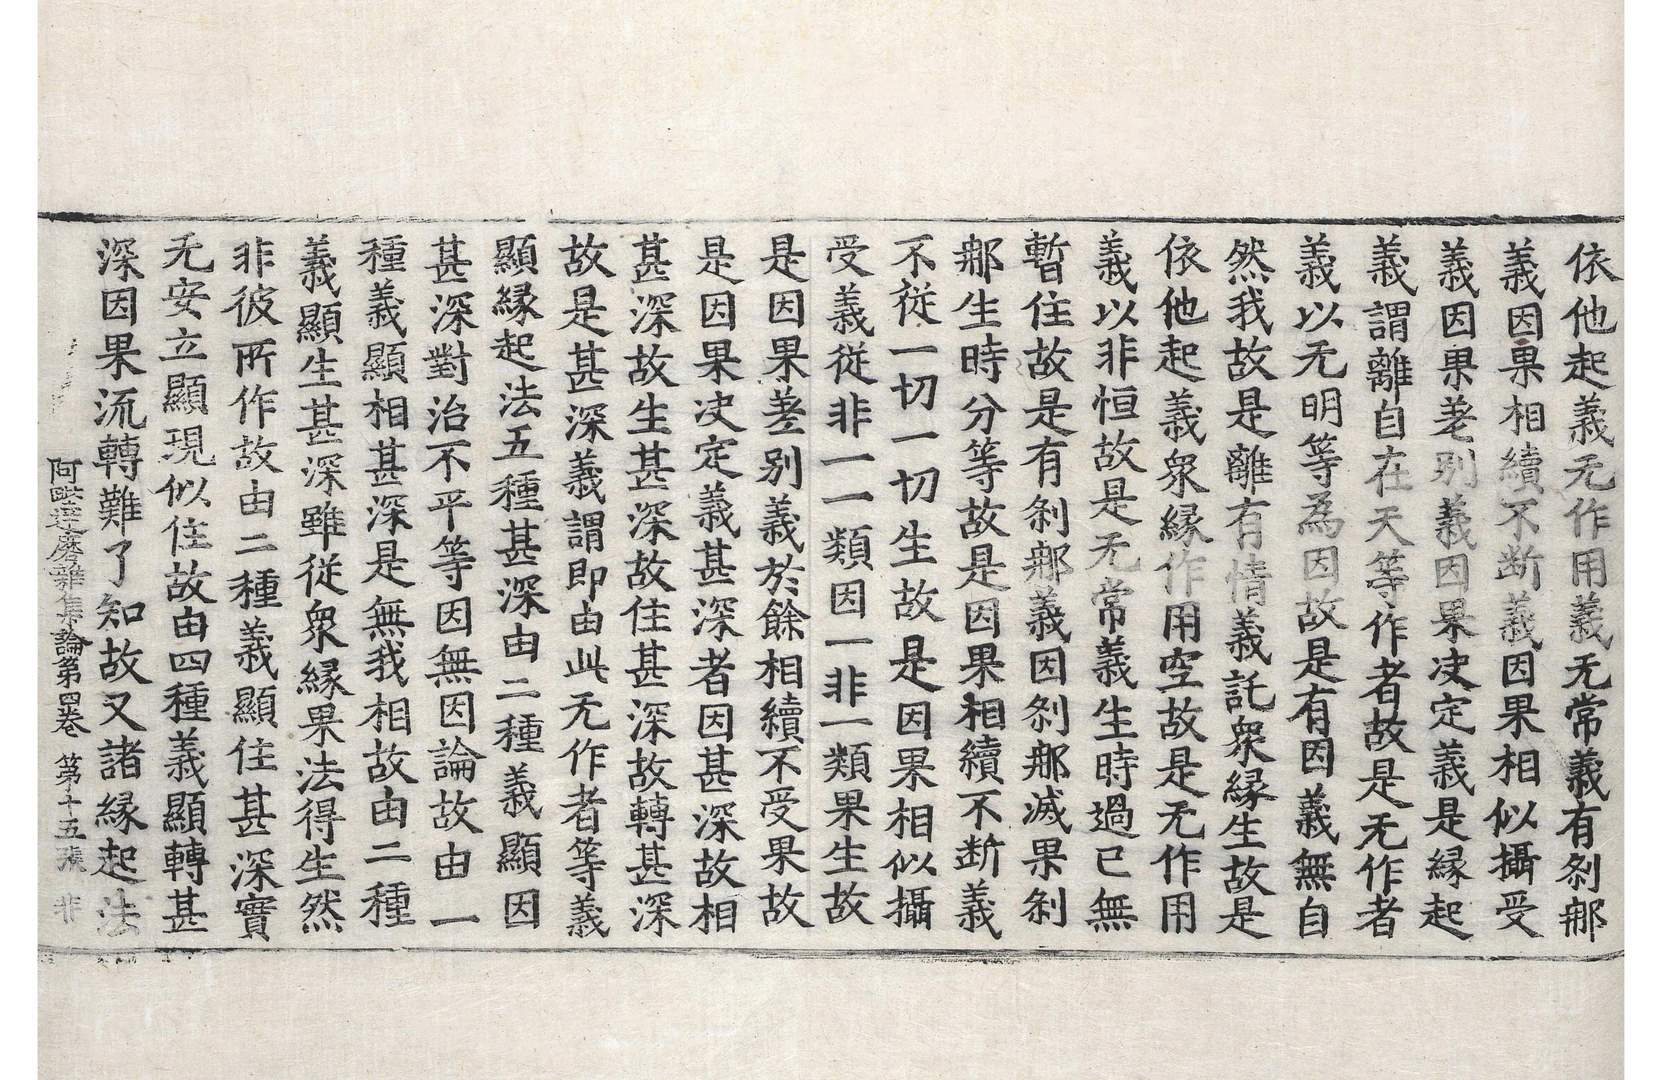 依他起義无作用義无常義有刹那
義因果相續不断義因果相似攝受
義因果差别義因果决定義是縁起
義謂離自在天等作者故是无作者
義以无明等為因故是有因義無自
然我故是離有情義託衆縁生故是
依他起義衆縁作用空故是无作用
義以非恒故是无常義生時過已無
暫住故是有刹那義因刹那滅果刹
那生時分等故是因果相續不断義
不從一切一切生故是因果相似攝
受義從非一一類因一非一類果生故
是因果差别義於餘相續不受果故
是因果决定義甚深者因甚深故相
甚深故生甚深故住甚深故轉甚深
故是甚深義謂即由此无作者等義
顯縁起法五種甚深由二種義顯因
甚深對治不平等因無因論故由一
種義顯相甚深是無我相故由二種
義顯生甚深雖從衆縁果法得生然
非彼所作故由二種義顯住甚深實
无安立顯現似住故由四種義顯轉甚
深因果流轉難了知故又諸縁起法
阿毗達磨雜集論第四卷 第十五張 非